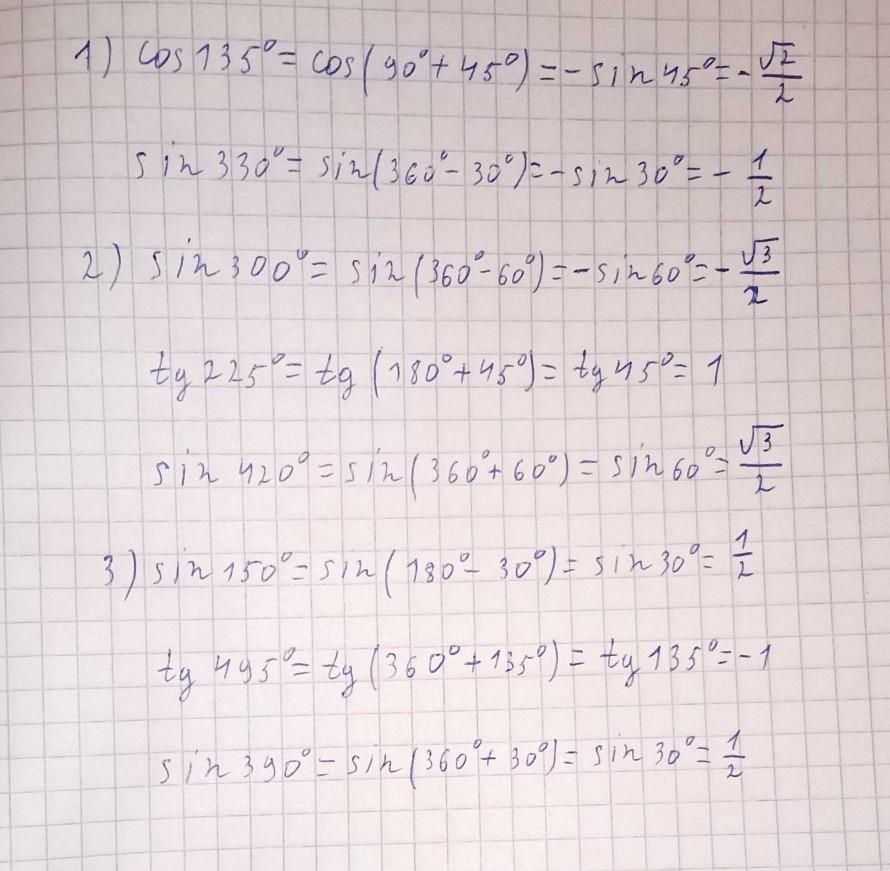 1) cos 135° = cos(90° + 45°) = - sin 45° = - √2/2
sin 330° = sin(360° - 30°) = - sin 30° = - 1/2
2) sin 300° = sin(360° - 60°) = - sin 60° = - √3/2
tg 225° = tg (180° + 45°) = tg 45° = 1
sin 420° = sin(360° + 60°) = sin 60° = √3/2
3) sin 150° = sin(180° - 30°) = sin 30° = 1/2
tg 495° = tg(360° + 135°) = tg 135° = -1
sin 390° = sin(360° + 30°) = sin 30° = 1/2